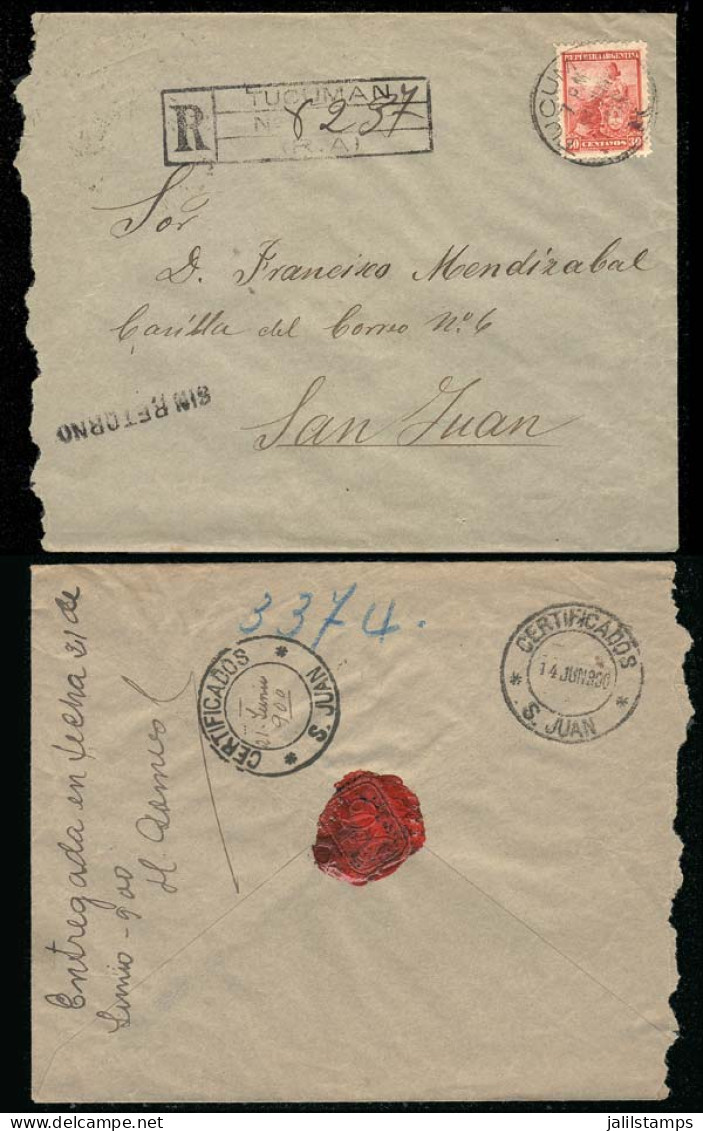 REPUBLICA ARGENTINA
30 CENTAVOS 30
TUCUMAN
R
Nº 8237
(R.A)
Sor
D. Francisco Mendizabal
Casilla del Correo Nº 6
San Juan
SIN RETORNO
3374.
CERTIFICADOS
S. JUAN
21 Junio
900
CERTIFICADOS
14 JUN 900
S. JUAN
Entregada en fecha 21 de
Junio - 900
jalilstamps